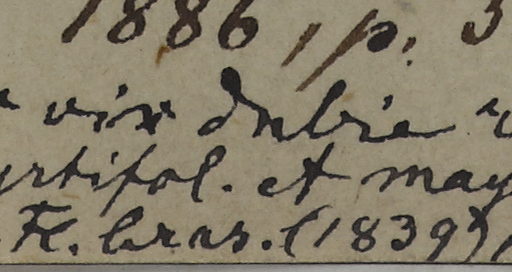 1886, p. 3
vix dubie
yrtifol. et may
Fl. bras. (1839),